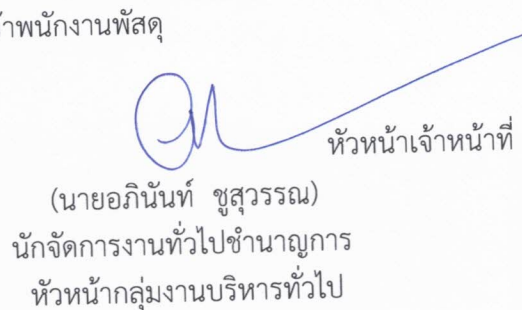 พนักงานพัสดุ
หัวหน้าเจ้าหน้าที่
(นายอภินันท์ ชูสุวรรณ)
นักจัดการงานทั่วไปชำนาญการ
หัวหน้ากลุ่มงานบริหารทั่วไป